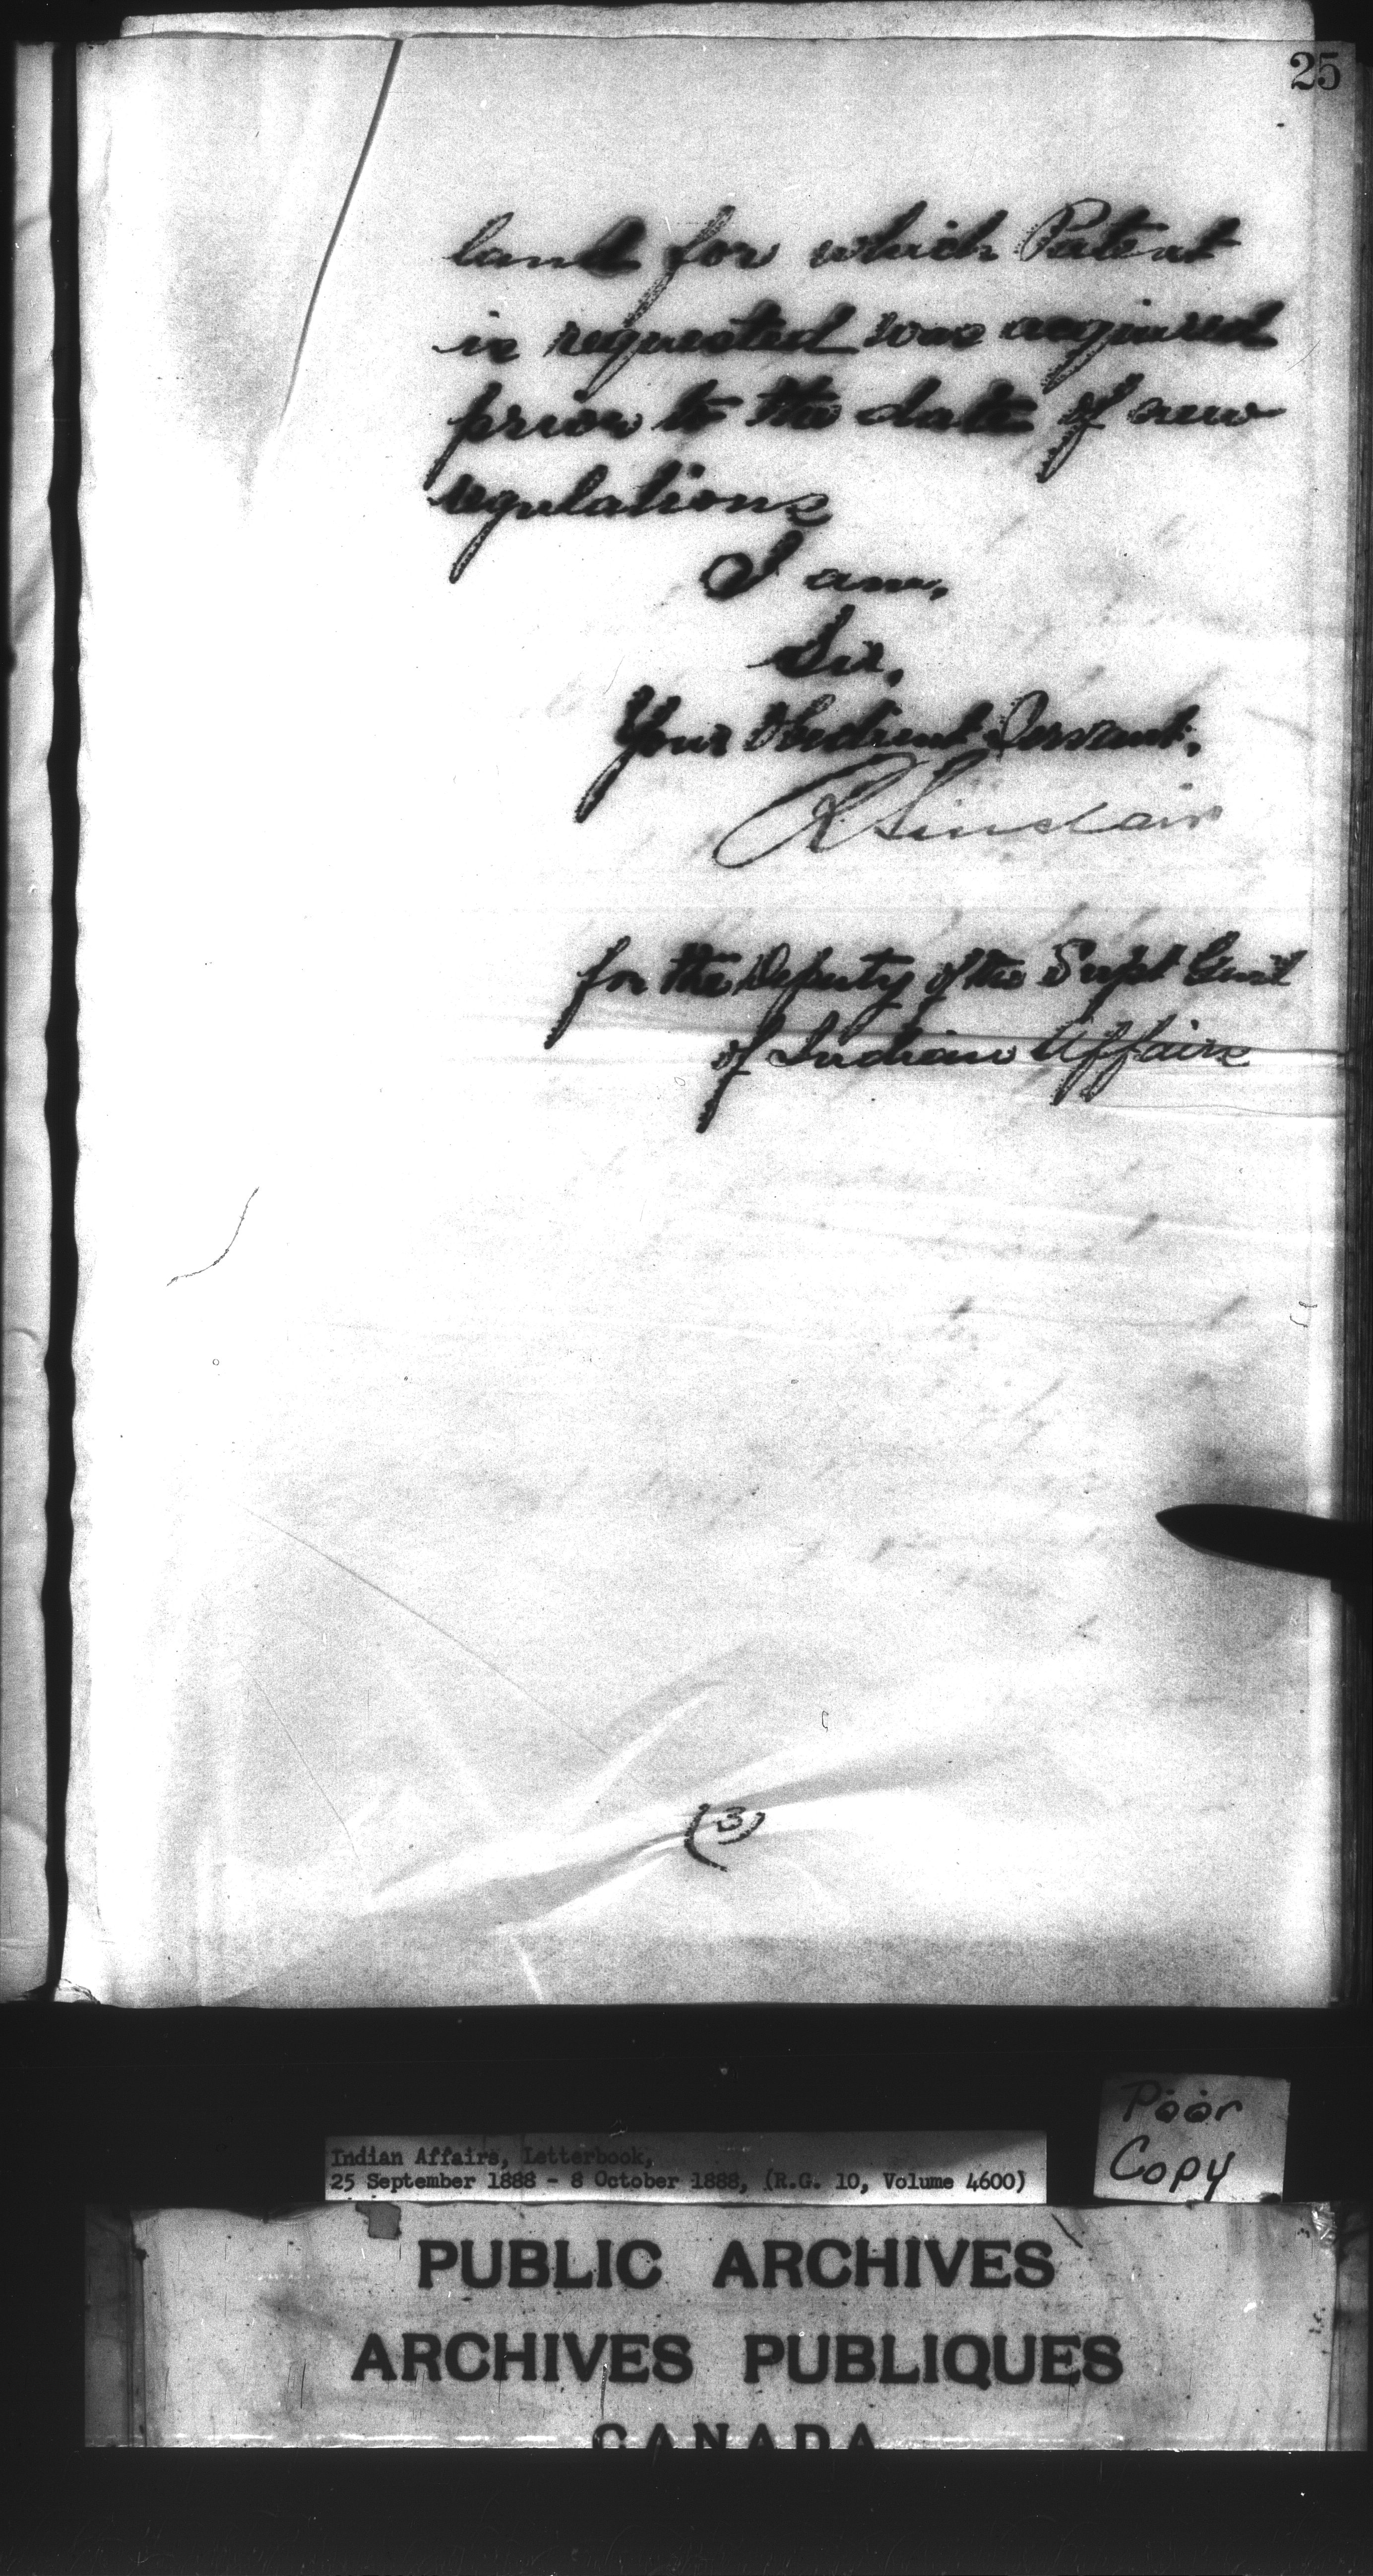 25
land for which Patent
is requested was acquired
prior to the date of new
regulations
I am,
Sir,
Your Obedient Servant,
R Sinclair
for the Deputy of the Supt Genl
of Indian Affairs
(3)
Poor
Copy
Indian Affairs, Letterbook,
25 September 1888 - 8 October 1888, (R.G. 10, Volume 4600)
PUBLIC ARCHIVES
ARCHIVES PUBLIQUES
CANADA